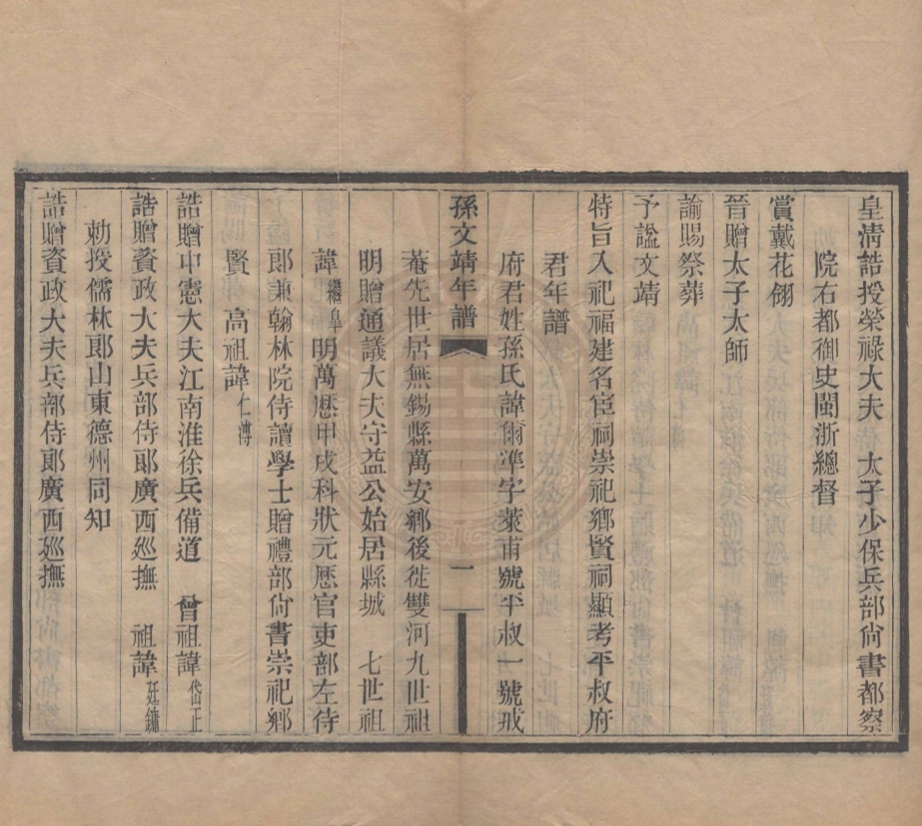 皇淸誥授榮祿大夫　太子少保兵部尙書都察
院右都御史閩浙總督
賞戴花翎
晉贈太子太師
諭賜祭葬
予諡文靖
特旨入祀福建名宦祠崇祀鄕賢祠顯考平叔府
君年譜
府君姓孫氏諱爾準字萊甫號平叔一號戒
孫文靖年譜　一
菴先世居無錫縣萬安鄕後徙雙河九世祖
明贈通議大夫守益公始居縣城　七世祖
諱繼皐明萬厯甲戌科狀元厯官吏部左侍
郞兼翰林院侍讀學士贈禮部尙書崇祀鄕
賢　高祖諱仁溥
誥贈中憲大夫江南淮徐兵備道　曾祖諱岱正
誥贈資政大夫兵部侍郞廣西廵撫　祖諱廷鏞
勅授儒林郞山東德州同知
誥贈資政大夫兵部侍郞廣西廵撫